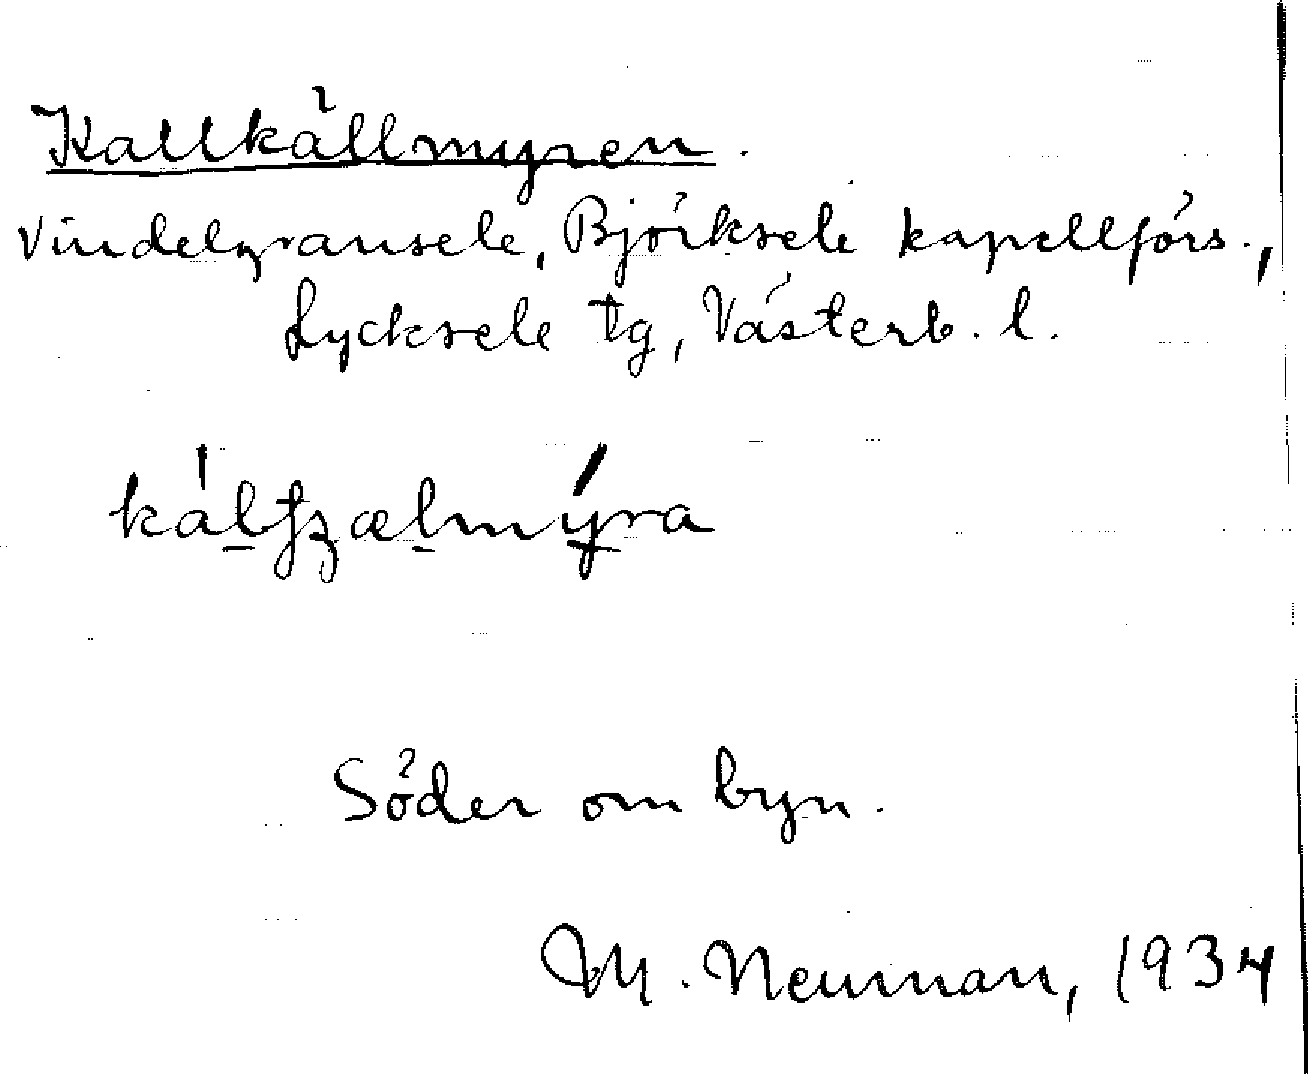 Kallkällmyren.
Vindelgransele, Björksele kapellförs.,
Lycksele tg, Västerb. l.
kálʈʒælmýra
Söder om byn.
M. Neuman, 1934